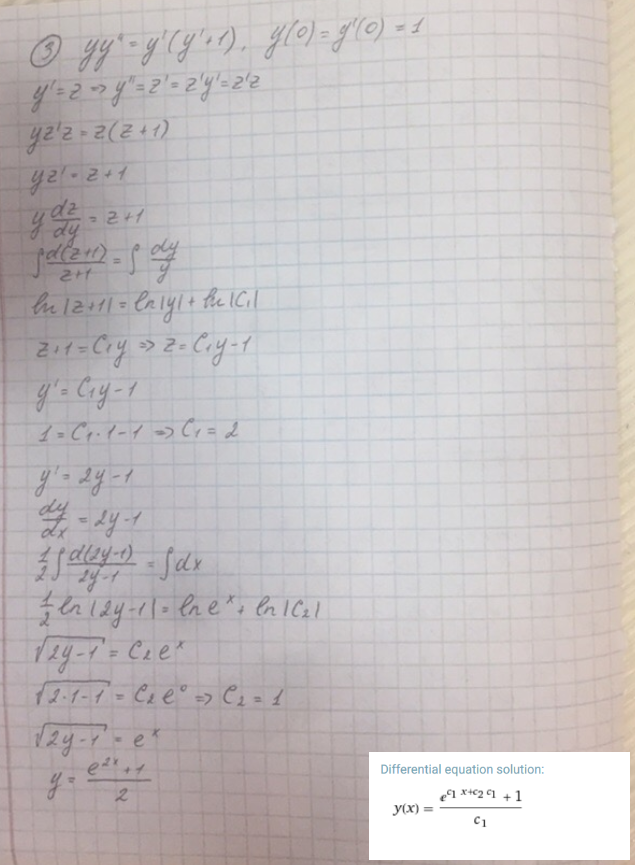 ③ yy'' = y'(y'+1), y(0) = y'(0) = 1
y' = z ⇒ y'' = z' = z'y' = z'z
yz'z = z(z+1)
yz' = z+1
y dz/dy = z+1
∫ d(z+1)/(z+1) = ∫ dy/y
ln|z+1| = ln|y| + ln|C₁|
z+1 = C₁y ⇒ z = C₁y-1
y' = C₁y-1
1 = C₁·1-1 ⇒ C₁ = 2
y' = 2y-1
dy/dx = 2y-1
1/2 ∫ d(2y-1)/(2y-1) = ∫dx
1/2 ln|2y-1| = ln eˣ + ln|C₂|
√(2y-1) = C₂eˣ
√(2·1-1) = C₂e⁰ ⇒ C₂ = 1
√(2y-1) = eˣ
y = (e²ˣ+1)/2
Differential equation solution:
y(x) = (e^(c₁ x+c₂ c₁) + 1)/c₁